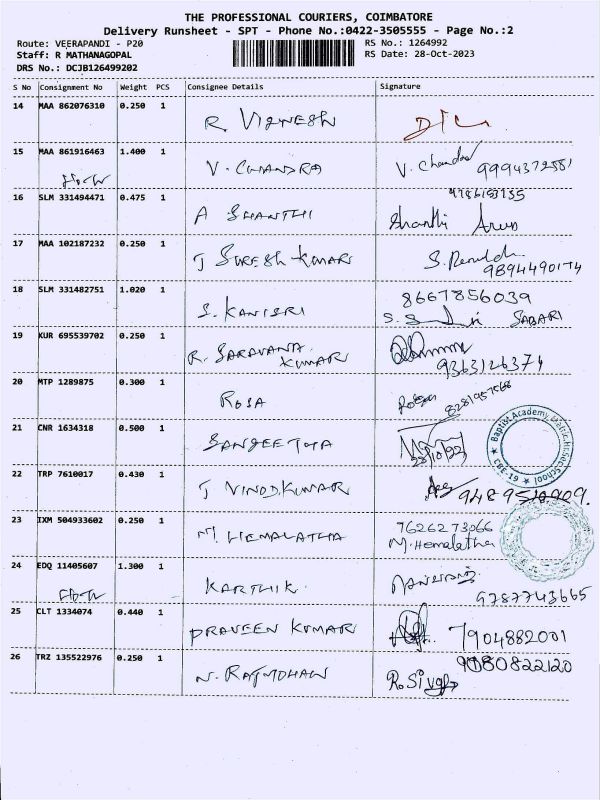 THE PROFESSIONAL COURIERS, COIMBATORE
Delivery Runsheet - SPT - Phone No.:0422-3505555 - Page No.:2
Route: VEERAPANDI - P20
Staff: R MATHANAGOPAL
DRS No.: DCJB126499202
RS No.: 1264992
RS Date: 28-Oct-2023
S No Consignment No Weight PCS Consignee Details Signature
14 MAA 862076310 0.250 1 R. VIGNESH
15 MAA 861916463 1.400 1 V. CHANDRA V. Chandra 9994372581
16 SLM 331494471 0.475 1 A SHANTHI 9786153755
Shanthi Arun
17 MAA 102187232 0.250 1 J SURESH KUMAR 9894490174
18 SLM 331482751 1.020 1 S. KANISRI 8667856039
SABARI
19 KUR 695539702 0.250 1 R. SARAVANA KUMAR 9363126374
20 MTP 1289875 0.300 1 ROSA 8281957568
21 CNR 1634318 0.500 1 SANGEETHA
Baptist Academy Matric.Hr.Sec.School
CBE-19
22 TRP 7610017 0.430 1 J VINODKUMAR 9489510909.
23 IXM 504933602 0.250 1 M. HEMALATHA 7626273066
M. Hemalatha
24 EDQ 11405607 1.300 1 KARTHIK 9787743665
25 CLT 1334074 0.440 1 PRAVEEN KUMAR 7904882001
26 TRZ 135522976 0.250 1 N. RAJMOHAN 9080822120